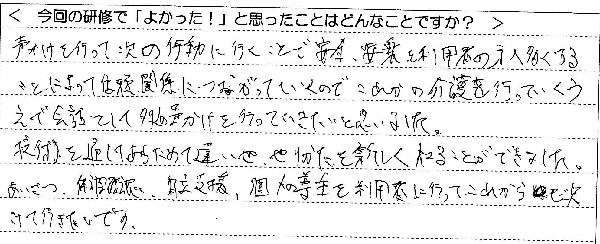 < 今回の研修で「よかった!」と思ったことはどんなことですか? >
声かけを行って次の行動に行くことで安全、安楽を利用者の方へ
ことによって信頼関係につながっていくので これからの介護を行っていくう
えで会話をして 声かけを行っていきたいと思いました。
を通しあらためて違いや、やり方を新しく知ることができました。
あいさつ、 、自立支援、個人の尊重を利用者に行ってこれから
けて行きたいです。